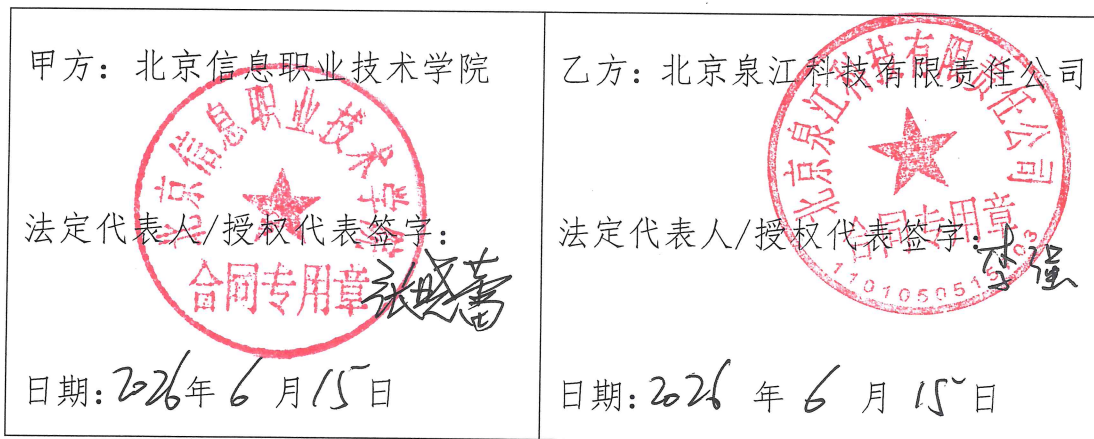 甲方：北京信息职业技术学院
北京信息职业技术学院
合同专用章
法定代表人/授权代表签字：
张晓蕾
日期：2026年6月15日
乙方：北京泉江科技有限责任公司
北京泉江科技有限责任公司
合同专用章
法定代表人/授权代表签字：
李强
日期：2026年6月15日